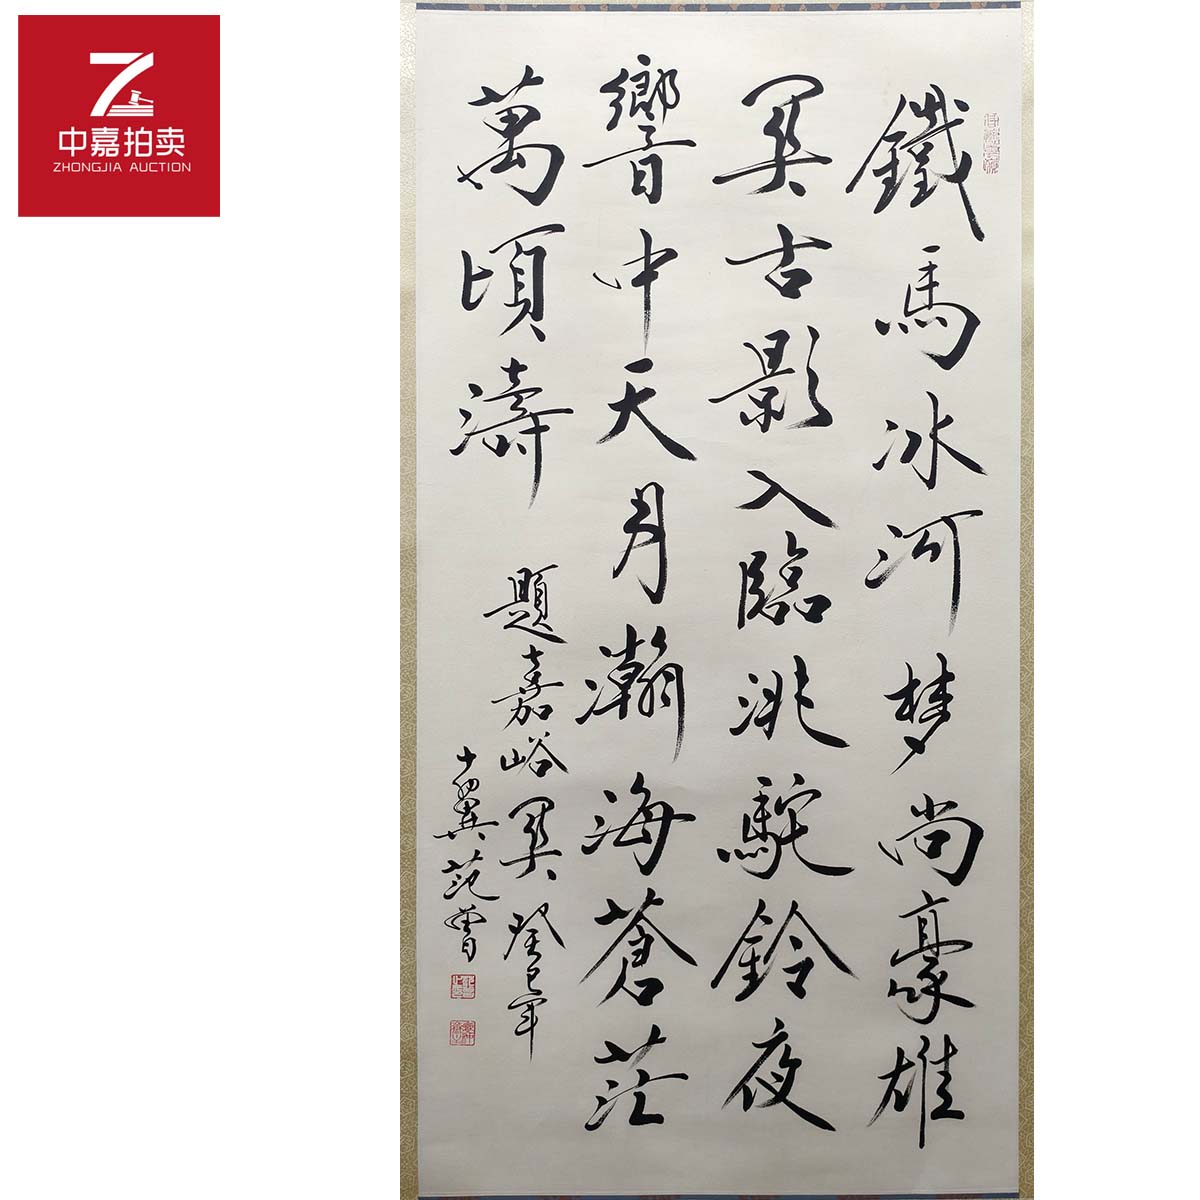 中嘉拍卖
ZHONGJIA AUCTION
鐵馬冰河梦尚豪雄
関古影入臨洮駝鈴夜
響中天月瀚海蒼茫
萬頃濤
題嘉峪関癸巳年
十翼范曾